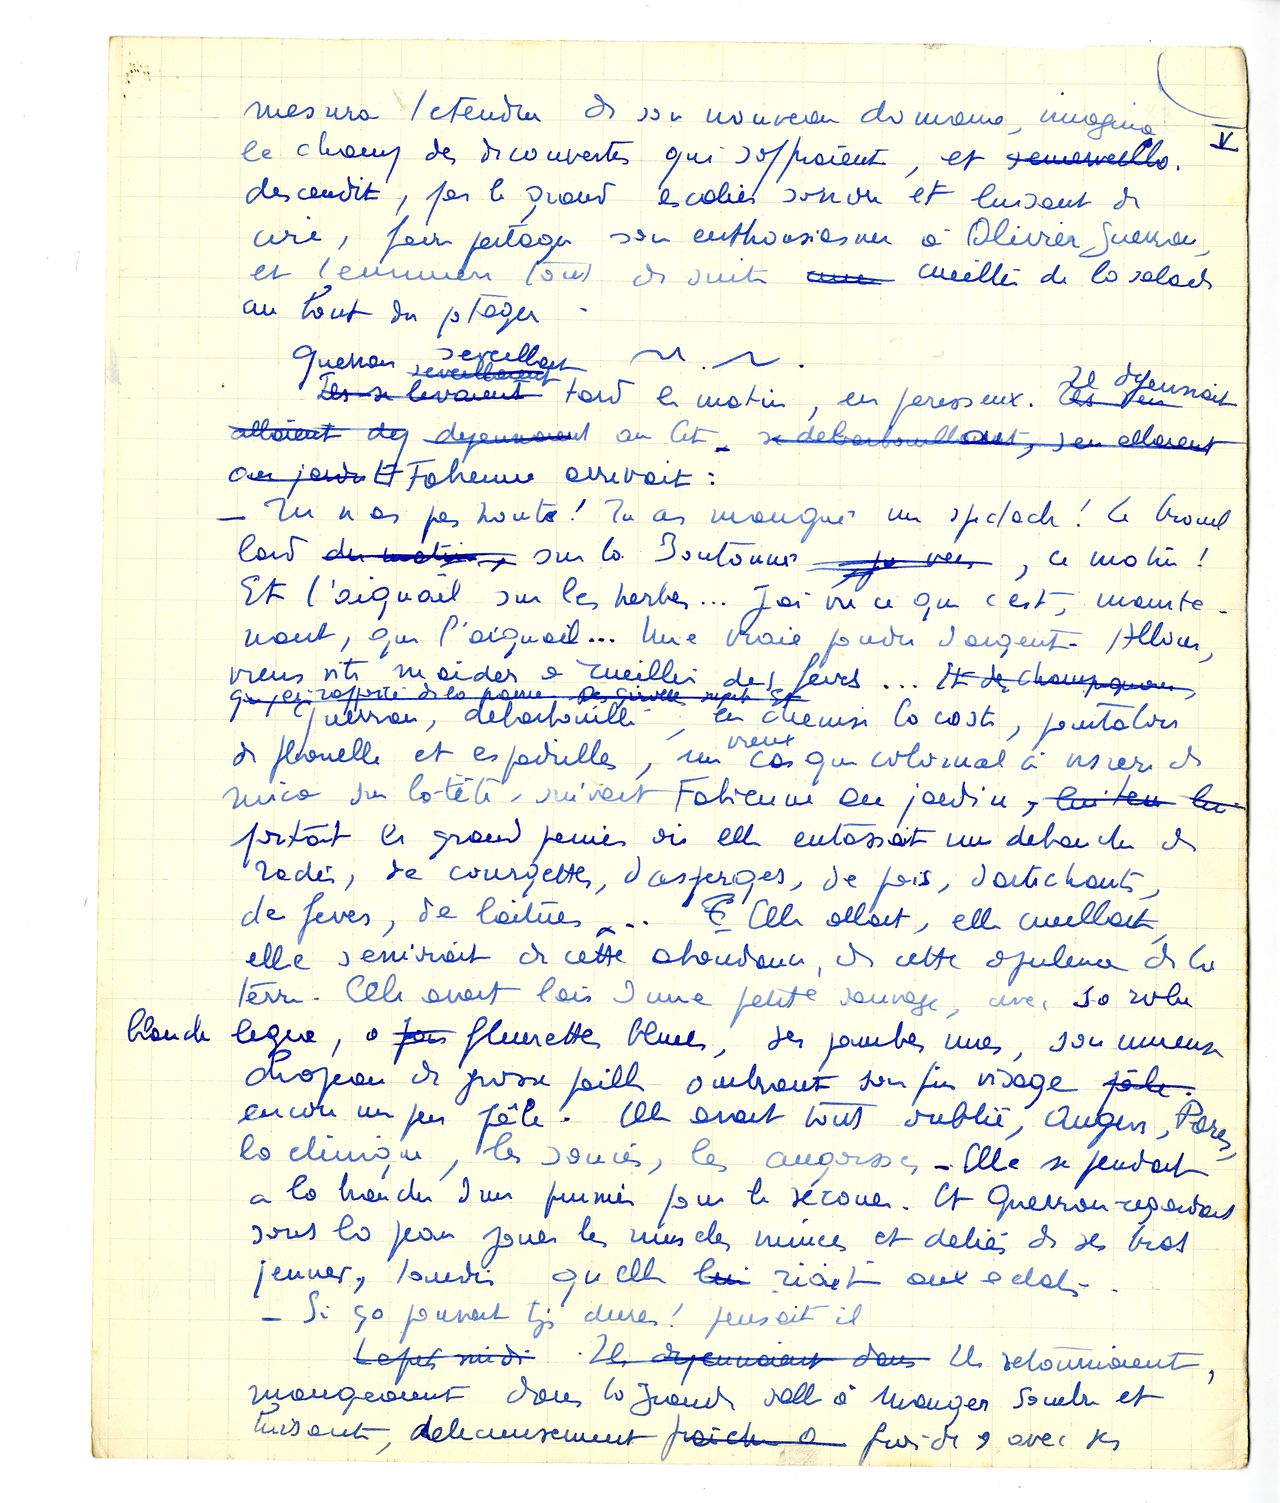 V
mesura l'étendue de son nouveau domaine, imagina
le champ des découvertes qui s'offraient, et s'émerveilla.
descendit, par le grand escalier sonore et luisant de
cire, faire partager son enthousiasme à Olivier Guerran,
et l'emmena tout de suite cueillir de la salade
au bout du potager.
Guerran se réveillait
se réveillaient
Ils se levaient tard le matin, en paresseux. Il déjeunait
allaient dej déjeunaient au lit. se débarbouillaient, s'en allaient
au jardin Et Fabienne arrivait :
– Tu n'as pas honte ! Tu as manqué un spectacle ! Le brouil
lard du matin, sur la Boutonne, ce matin !
Et l'aiguail sur les herbes... J'ai vu ce que c'est, mainte-
nant, que l'aiguail... Une vraie poudre d'argent. Allons,
viens vite m'aider à cueillir des fèves... Et des champignons,
que j'ai rapporté de la
Guerran, débarbouillé, en chemise lacoste, pantalon
de flanelle et espadrilles, un vieux casque colonial à visière de
mica sur la tête, suivait Fabienne au jardin,
portait le grand panier où elle entassait une débauche de
radis, de courgettes, d'asperges, de pois, d'artichauts,
de fèves, de laitues... Elle allait, elle cueillait,
elle s'enivrait de cette abondance, de cette opulence de la
terre. Elle avait l'air d'une petite sauvage, avec sa robe
blanche légère, à fleurettes bleues, ses jambes nues, son immense
chapeau de grosse paille ombrant son fin visage pâle.
encore un peu pâle. Elle avait tout oublié, Angers, Paris,
la clinique, les soucis, les angoisses. Elle se pendait
à la branche d'un prunier pour le secouer. Et Guerran regardait
sous la peau jouer les muscles minces et déliés de ses bras
jeunes, tandis qu'elle lui riait aux éclats.
– Si ça pouvait tjs durer ! pensait il
L'après midi Ils déjeunaient dans Ils retournaient,
mangeaient dans la grande salle à manger sombre et
luisante, délicieusement fraîche froide, avec ses